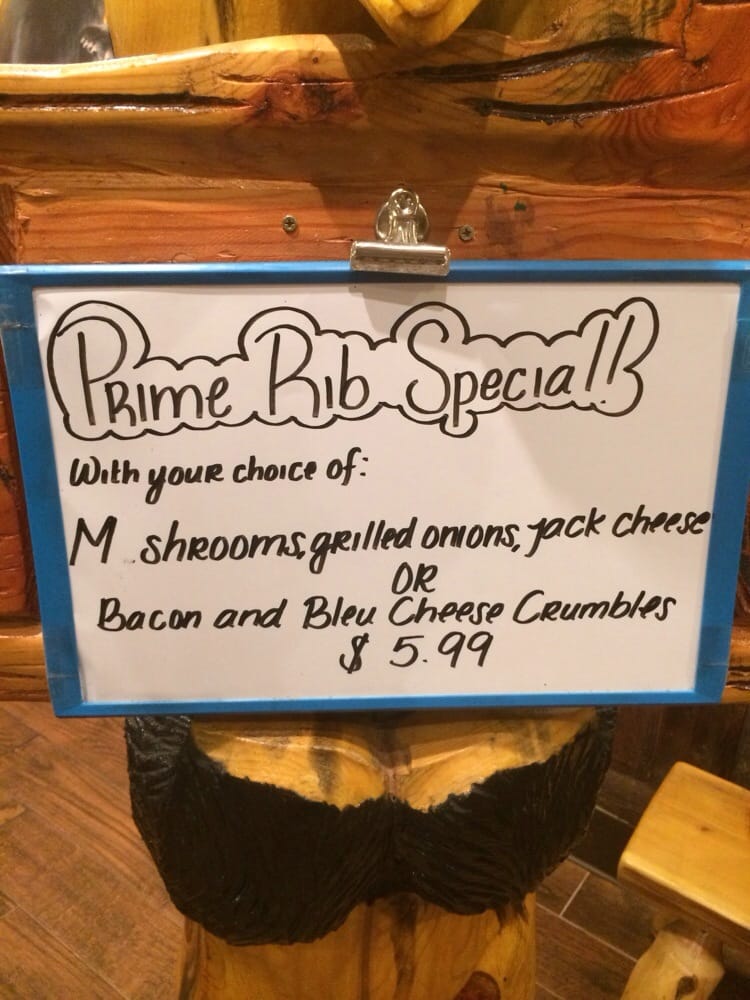 Prime Rib Special!!
With your choice of:
M shrooms, grilled onions, jack cheese
OR
Bacon and Bleu Cheese Crumbles
$ 5.99